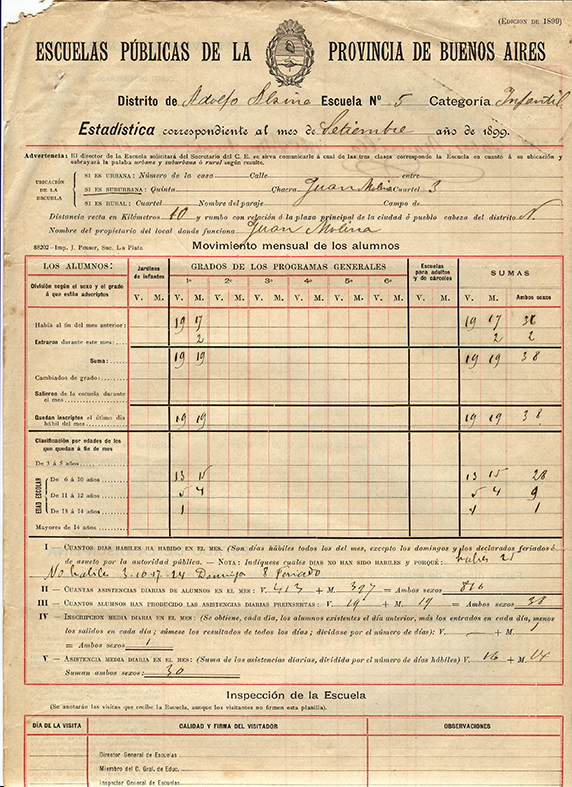 (EDICION DE 1899)
ESCUELAS PÚBLICAS DE LA PROVINCIA DE BUENOS AIRES
Distrito de Adolfo Alsina Escuela Nº 5 Categoría Infantil
Estadística correspondiente al mes de Setiembre año de 1899.
Advertencia: El director de la Escuela solicitará del Secretario del C. E. se sirva comunicarle á cual de las tres clases corresponde la Escuela en cuanto á su ubicación y
subrayará la palabra urbana y suburbana ó rural según resulte.
UBICACIÓN DE LA ESCUELA
SI ES URBANA: Número de la casa Calle entre
SI ES SUBURBANA: Quinta Chacra Juan Molina Cuartel 3
SI ES RURAL: Cuartel Nombre del paraje Campo de
Distancia recta en Kilómetros 10 y rumbo con relación á la plaza principal de la ciudad ó pueblo cabeza del distrito N.
Nombre del propietario del local donde funciona Juan Molina
88202-Imp. J. Peuser, Suc. La Plata
Movimiento mensual de los alumnos
LOS ALUMNOS: Jardines de infantes GRADOS DE LOS PROGRAMAS GENERALES Escuelas para adultos y de cárceles SUMAS
División según el sexo y el grado á que están adscriptos
1º 2º 3º 4º 5º 6º
V. M. V. M. V. M. V. M. V. M. V. M. V. M. V. M. V. M. Ambos sexos
Había al fin del mes anterior: 19 17 19 17 36
Entraron durante este mes: 2 2 2
Suma: 19 19 19 19 38
Cambiados de grado:
Salieron de la escuela durante el mes
Quedan inscriptos el último día hábil del mes 19 19 19 19 38
Clasificación por edades de los que quedan á fin de mes
De 3 á 5 años
EDAD ESCOLAR
De 6 á 10 años 13 15 13 15 28
De 11 á 12 años 5 4 5 4 9
De 13 á 14 años 1 1 1
Mayores de 14 años
I — CUANTOS DIAS HABILES HA HABIDO EN EL MES. (Son días hábiles todos los del mes, excepto los domingos y los declarados feriados ó
de asueto por la autoridad pública. — NOTA: Indíquese cuales DIAS NO HAN SIDO HABILES Y PORQUÉ: habiles 25
No habiles 3-10-17-24 Domingo 8 Feriado
II — CUANTAS ASISTENCIAS DIARIAS DE ALUMNOS EN EL MES: V. 413 + M. 397 = Ambos sexos 810
III — CUANTOS ALUMNOS HAN PRODUCIDO LAS ASISTENCIAS DIARIAS PREINSERTAS: V. 19 + M. 19 = Ambos sexos 38
IV — INSCRIPCION MEDIA DIARIA EN EL MES: (Se obtiene, cada día, los alumnos existentes el día anterior, más los entrados en cada día, menos
los salidos en cada día; súmese los resultados de todos los días; divídase por el número de días): V. — + M. 1
= Ambos sexos 1
V — ASISTENCIA MEDIA DIARIA EN EL MES: (Suma de las asistencias diarias, dividida por el número de días hábiles) V. 16 + M. 14
Suman ambos sexos: 30
Inspección de la Escuela
(Se anotarán las visitas que recibe la Escuela, aunque los visitantes no firmen esta planilla).
DÍA DE LA VISITA CALIDAD Y FIRMA DEL VISITADOR OBSERVACIONES
Director General de Escuelas
Miembro del C. Gral. de Educ.
Inspector General de Escuelas